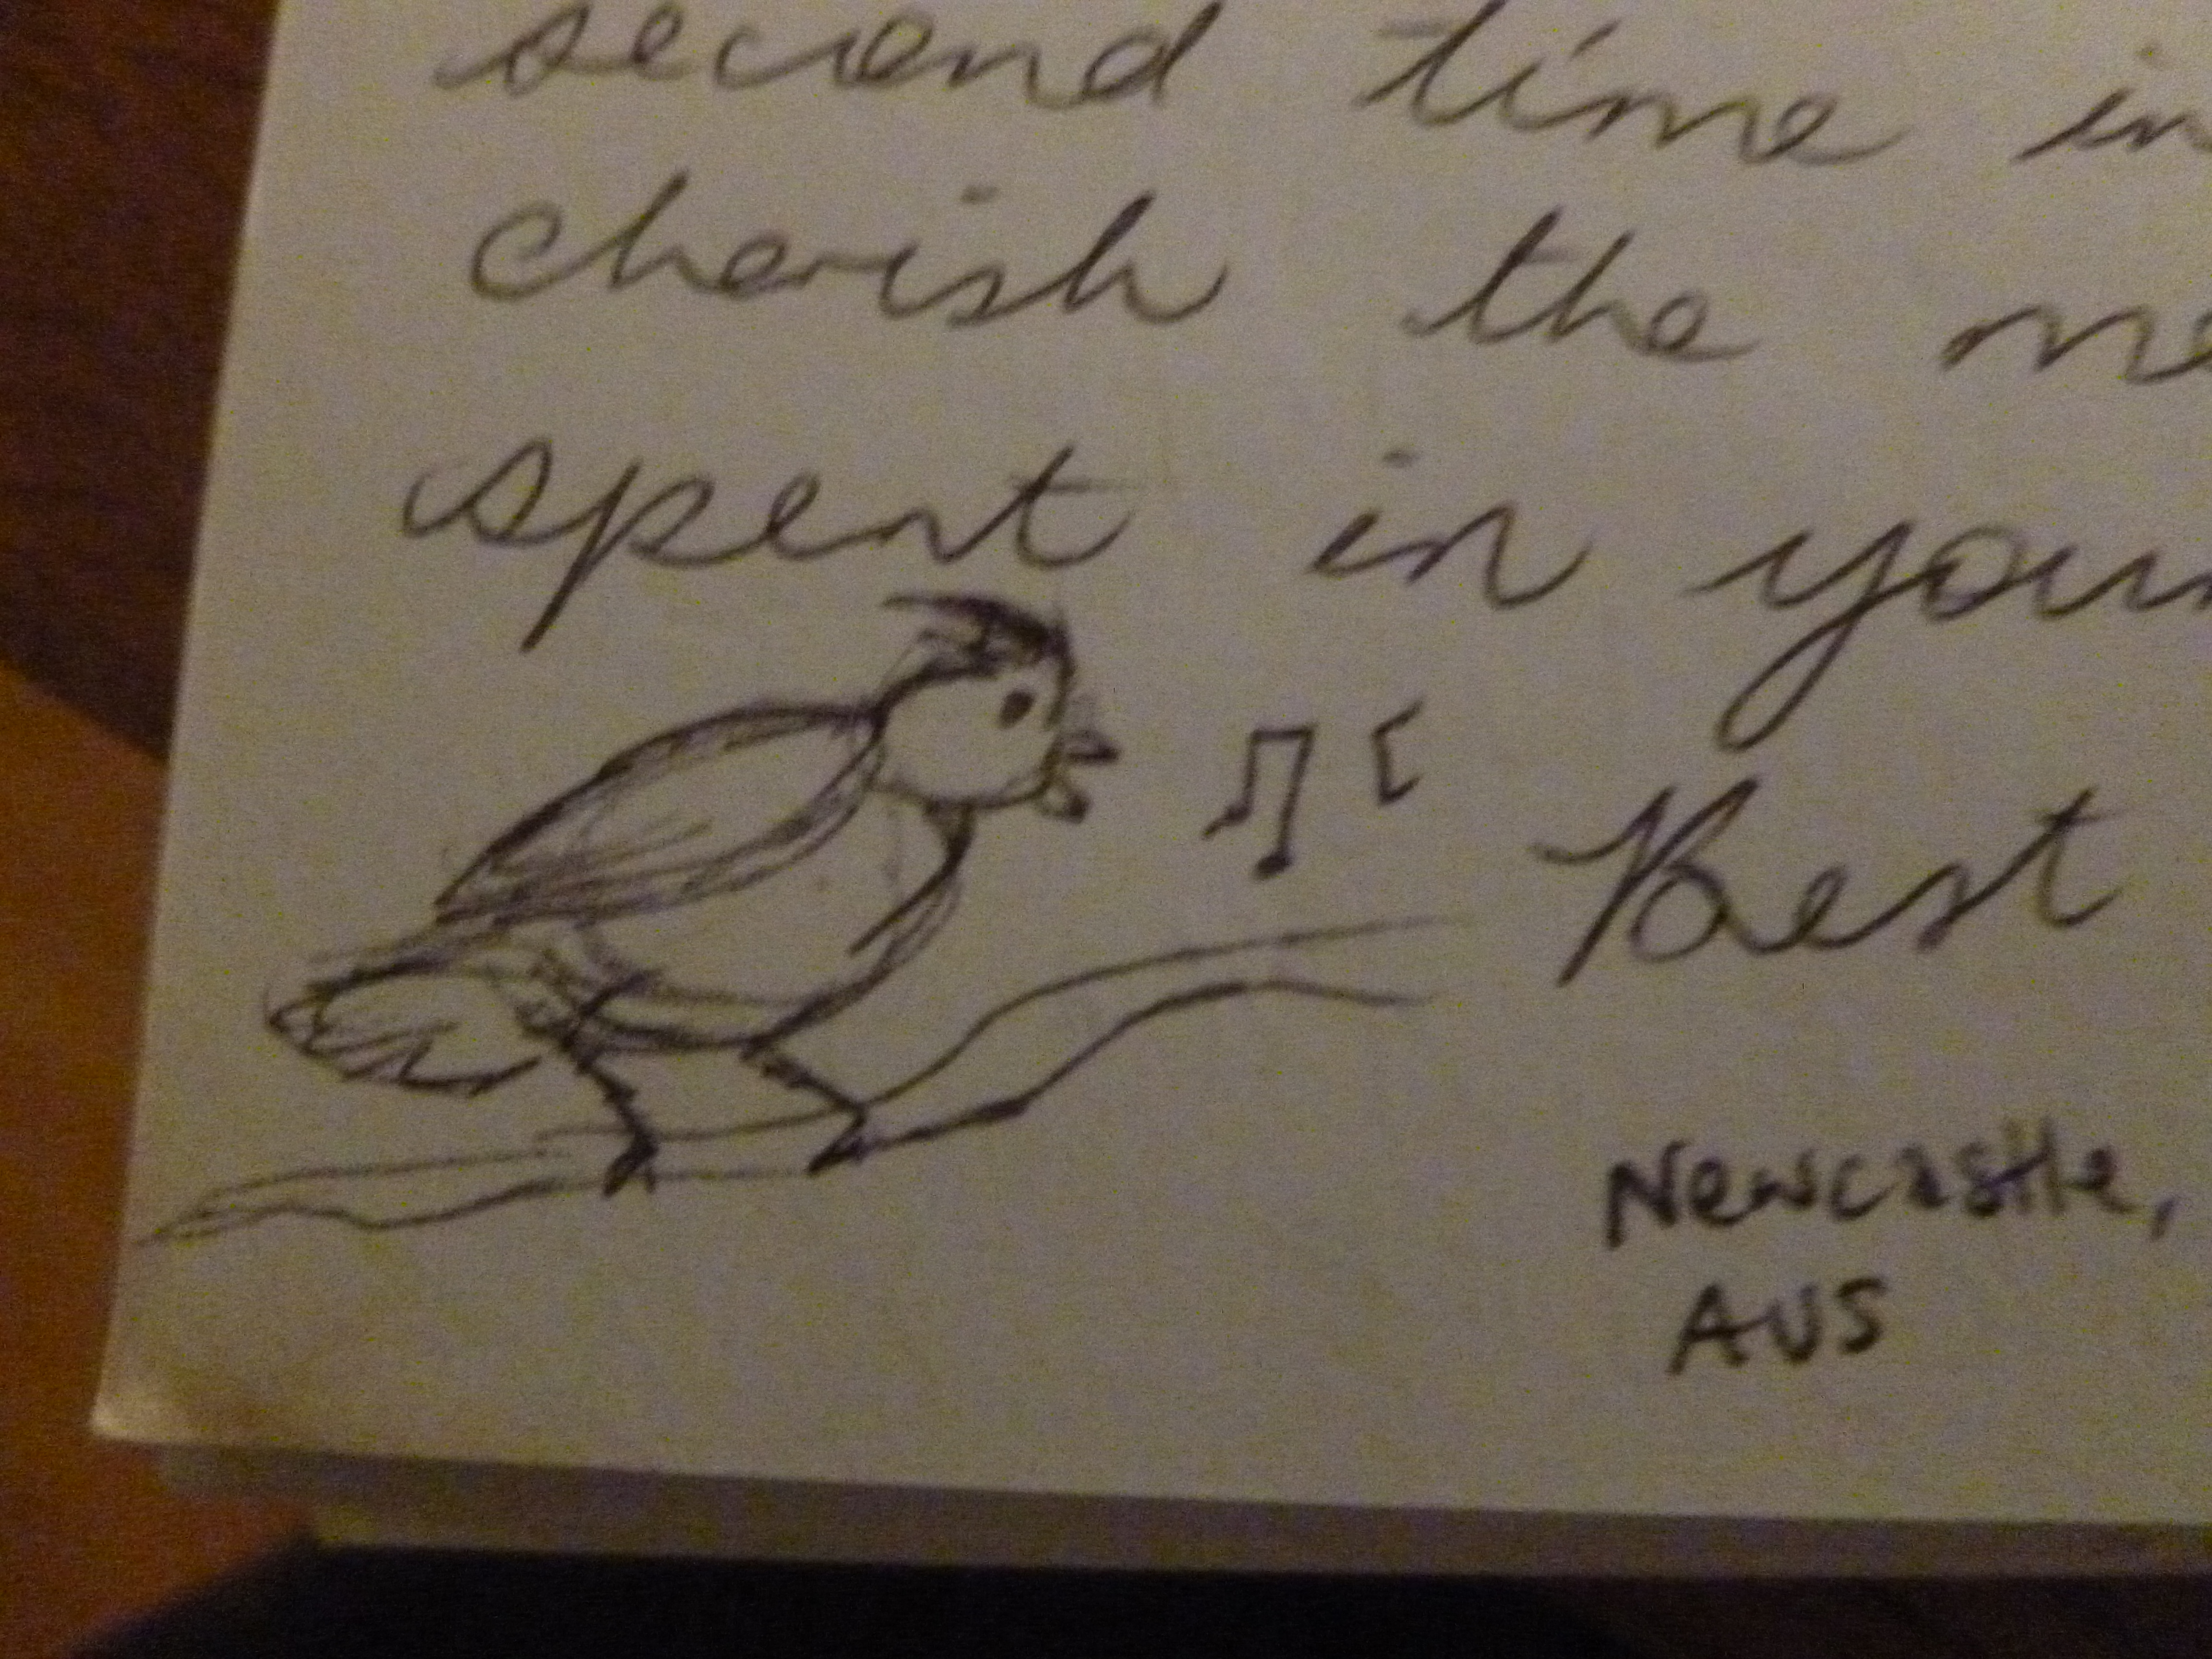 second time in
cherish the me
spent in your
Best
Newcastle,
AUS